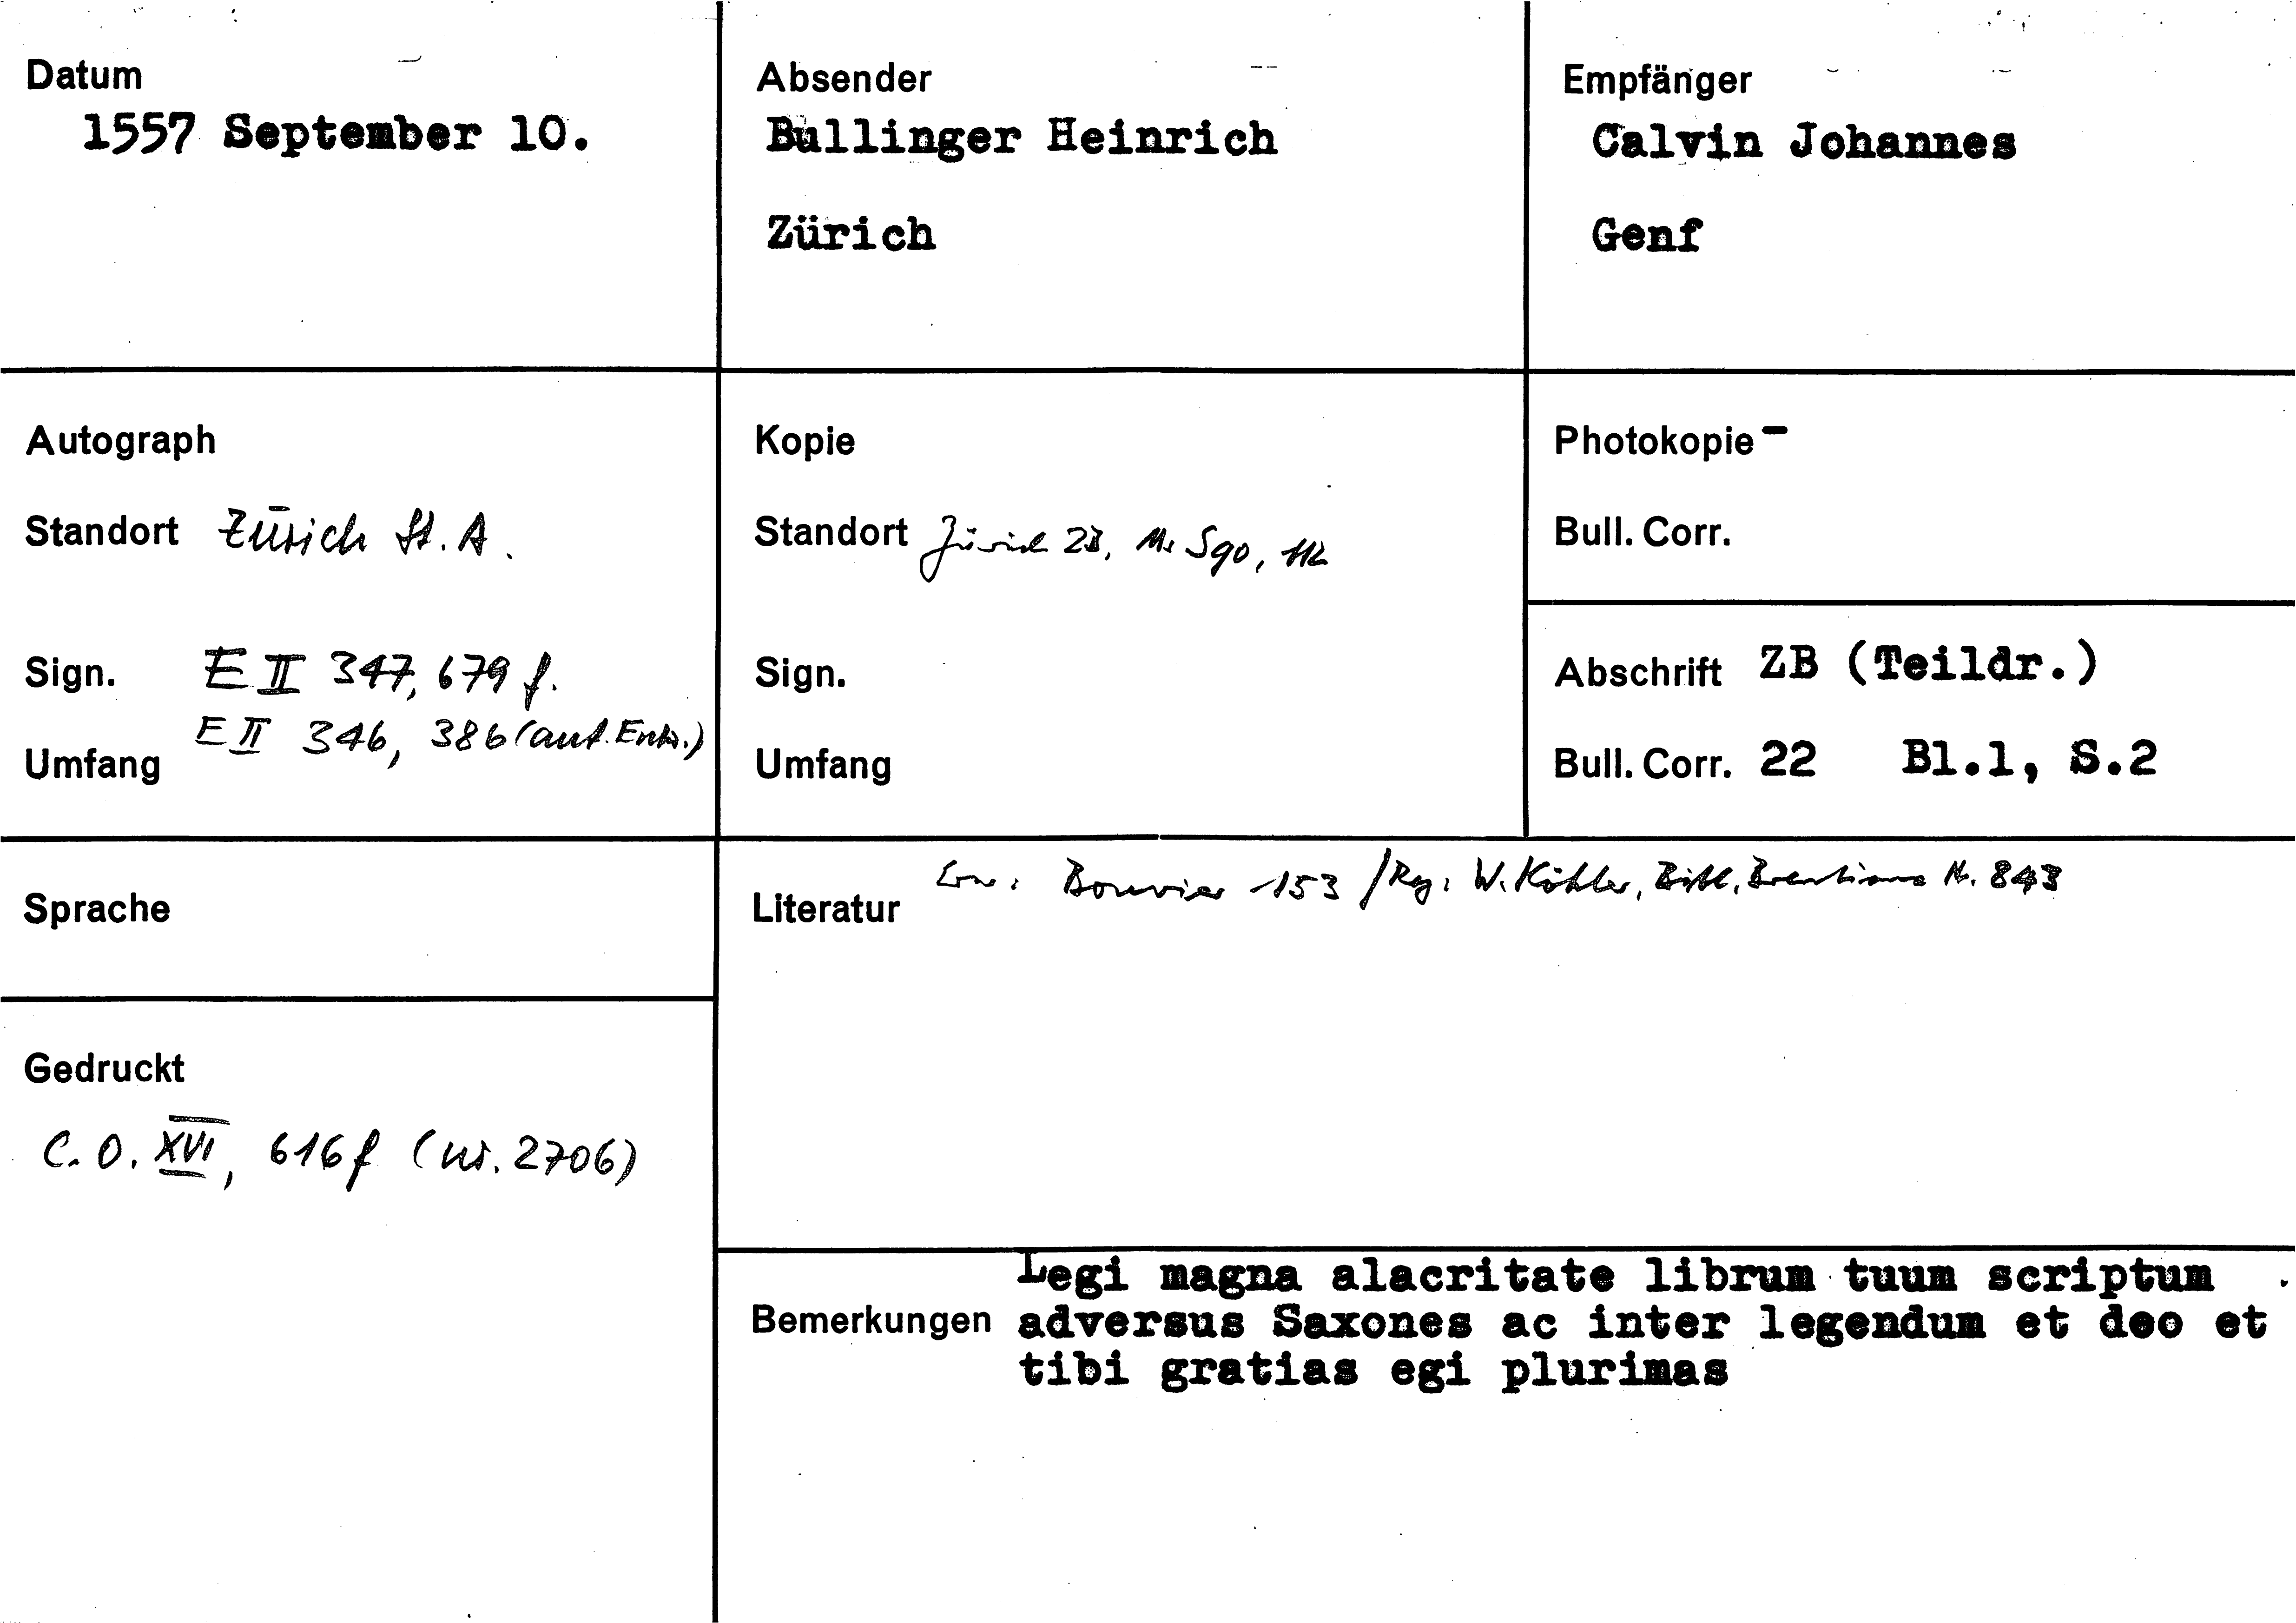 Datum
1557 September 10.
Absender
Bullinger Heinrich
Zürich
Empfänger
Calvin Johannes
Genf
Autograph
Standort Zürich St. A.
Sign. E II 347, 679 f.
E II 346, 386 (aut. Entw.)
Umfang
Kopie
Standort Zürich ZB, Ms S 90, 112
Sign.
Umfang
Photokopie -
Bull. Corr.
Abschrift ZB (Teildr.)
Bull. Corr. 22 Bl.1, S.2
Sprache
Literatur Erw: Bouvier 153 / Reg: W. Köhler, Bibl. Brentiana Nr. 843
Gedruckt
C. O. XVI, 616 f (Nr. 2706)
Bemerkungen
Legi magna alacritate librum tuum scriptum
adversus Saxones ac inter legendum et deo et
tibi gratias egi plurimas